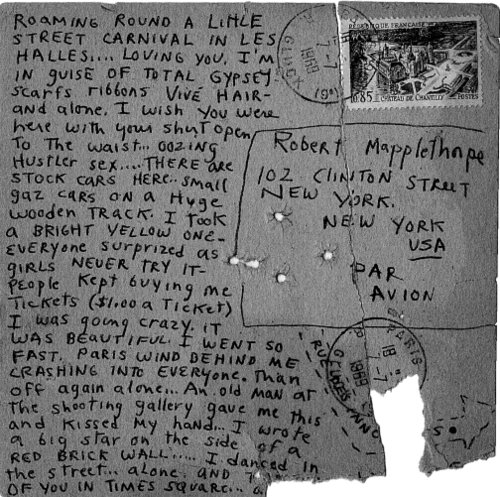 ROAMING ROUND A LITTLE
STREET CARNIVAL IN LES
HALLES.... LOVING YOU, I'M
IN GUISE OF TOTAL GYPSEY
SCARFS RIBBONS VIVE HAIR-
AND ALONE. I WISH YOU WERE
HERE WITH YOUR SHIRT OPEN
TO THE WAIST... OOZING
HUSTLER SEX.... THERE ARE
STOCK CARS HERE.. SMALL
GAZ CARS ON A HUGE
WOODEN TRACK. I TOOK
A BRIGHT YELLOW ONE-
EVERYONE SURPRIZED AS
GIRLS NEVER TRY IT-
PEOPLE KEPT BUYING ME
TICKETS ($1.00 A TICKET)
I WAS GOING CRAZY. IT
WAS BEAUTIFUL. I WENT SO
FAST. PARIS WIND BEHIND ME
CRASHING INTO EVERYONE. THAN
OFF AGAIN ALONE... AN OLD MAN AT
THE SHOOTING GALLERY GAVE ME THIS
AND KISSED MY HAND... I WROTE
A BIG STAR ON THE SIDE OF A
RED BRICK WALL..... I DANCED IN
THE STREET... ALONE. AND
OF YOU IN TIMES SQUARE...
REPUBLIQUE FRANCAISE
0,85 CHATEAU DE CHANTILLY POSTES
ROBERT MAPPLETHORPE
102 CLINTON STREET
NEW YORK.
NEW YORK
USA
PAR
AVION
PARIS
18
1969